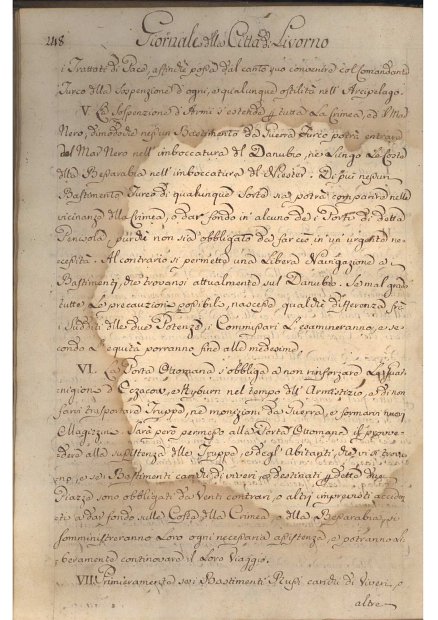 248 Giornale della Città di Livorno
i Trattati di Pace, affinchè possa dal canto suo convenire col Comandante
Turco della Sospenzione d'ogni, e qualunque ostilità nell'Arcipelago.
V. La Sospenzione d'Armi s'estende p tutta la Crimea, ed il Mar
Nero, dimodochè nessun Bastimento da Guerra Turco potrà entrare
dal Mar Nero nell'imboccatura del Danubio, nè Lungo Le Coste
della Bessarabia nell'imboccatura del Niester. Di più nessun
Bastimento Turco di qualunque Sorta sia, potrà comparire nelle
vicinanze della Crimea, o dar fondo in alcuno de i Porti di detta
Penisola, purchè non sia obbligato da far ciò in un' urgente ne=
cessità. Al contrario si permette una Libera Navigazione a i
Bastimenti, che trovansi attualmente sul Danubio. Se mal grado
tutte Le precauzioni possibili, nascesse qualche differenza fra
i Sudditi delle due Potenze, i Commissari L'esamineranno, e se=
condo L'equità porranno fine alle medesime.
VI. La Porta Ottomana s'obbliga a non rinforzare La Guar=
nigione d'Oczacow, e Kyburn nel tempo dell'Armistizio, e di non
farvi trasportare Truppe, nè monizioni da Guerra, e formarvi nuovi
Magazzini. Sarà però permesso alla Porta Ottomana di provve=
dere alla sussistenza delle Truppe, e degl'Abitanti, che vi si trova=
no, e se i Bastimenti carichi di viveri, e destinati p dette due
Piazze sono obbligati da Venti contrari, o altri imprevisti acciden=
ti a dar fondo sulle Coste della Crimea, o della Bessarabia, si
somministreranno Loro ogni necessaria assistenza, e potranno li=
beramente continovare il Loro Viaggio.
VII. Primieramente se i Bastimenti Russi carichi di Viveri, o
altre